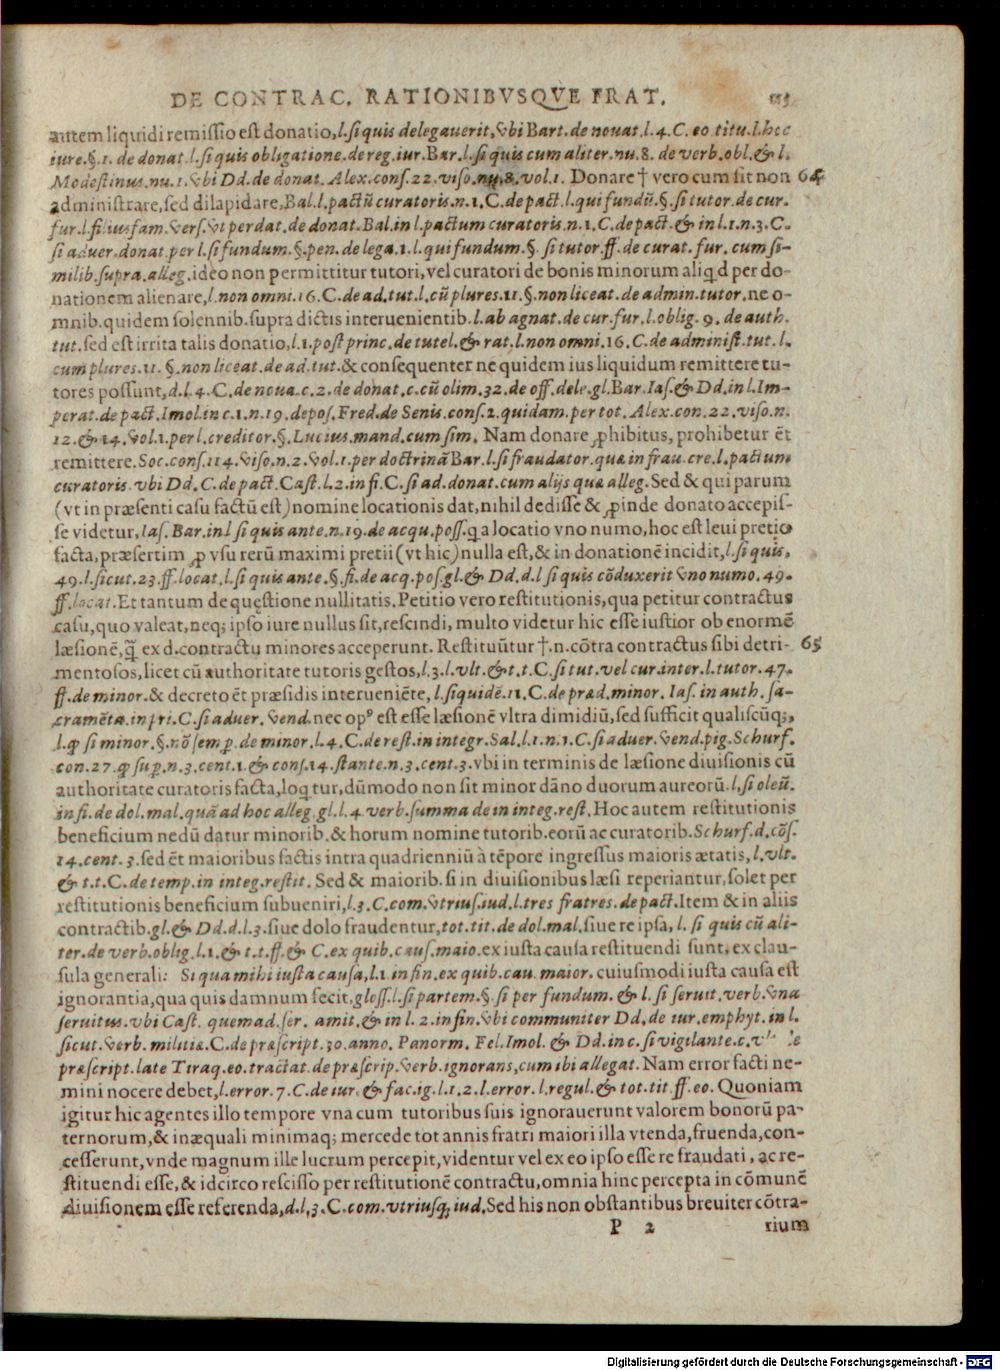 DE CONTRAC. RATIONIBVSQVE FRAT. 115
autem liquidi remissio est donatio, l. si quis delegauerit, vbi Bart. de nouat. l. 4. C. eo titu. l. hec
iure. §. 1. de donat. l. si quis obligatione. de reg. iur. Bar. l. si quis cum aliter. nu. 8. de verb. obl. & l.
Modestinus. nu. 1. vbi Dd. de donat. Alex. cons. 22. viso. nu. 8. vol. 1. Donare † vero cum sit non 64
administrare, sed dilapidare, Bal. l. pactū curatoris. n. 1. C. de pact. l. qui fundū. §. si tutor. de cur.
fur. l. filiusfam. vers. vt perdat. de donat. Bal. in l. pactum curatoris. n. 1. C. de pact. & in l. 1. n. 3. C.
si aduer. donat. per l. si fundum. §. pen. de lega. 1. l. qui fundum. §. si tutor. ff. de curat. fur. cum si-
milib. supra. alleg. ideo non permittitur tutori, vel curatori de bonis minorum aliqd per do-
nationem alienare, l. non omni. 16. C. de ad. tut. l. cū plures. 11. §. non liceat. de admin. tutor. ne o-
mnib. quidem solennib. supra dictis interuenientib. l. ab agnat. de cur. fur. l. oblig. 9. de auth.
tut. sed est irrita talis donatio, l. 1. post princ. de tutel. & rat. l. non omni. 16. C. de administ. tut. l.
cum plures. 11. §. non liceat. de ad. tut. & consequenter ne quidem ius liquidum remittere tu-
tores possunt, d. l. 4. C. de noua. c. 2. de donat. c. cū olim. 32. de off. dele. gl. Bar. Ias. & Dd. in l. Im-
perat. de pact. Imol. in c. 1. n. 19. depos. Fred. de Senis. cons. 2. quidam. per tot. Alex. con. 22. viso. n.
12. & 14. vol. 1. per l. creditor. §. Lucius. mand. cum sim. Nam donare ꝓhibitus, prohibetur ēt
remittere. Soc. cons. 114. viso. n. 2. vol. 1. per doctrinā Bar. l. si fraudator. quæ in frau. cre. l. pactum
curatoris. vbi Dd. C. de pact. Cast. l. 2. in fi. C. si ad. donat. cum alijs quæ alleg. Sed & qui parum
(vt in præsenti casu factū est) nomine locationis dat, nihil dedisse & ꝓinde donato accepis-
se videtur, Ias. Bar. in l si quis ante. n. 19. de acqu. poss. qa locatio vno numo, hoc est leui pretio
facta, præsertim ꝓ vsu rerū maximi pretii (vt hic) nulla est, & in donationē incidit, l. si quis.
49. l. sicut. 23. ff. locat, l. si quis ante. §. fi. de acq. pos. gl. & Dd. d. l si quis cōduxerit vno numo. 49.
ff. locat. Et tantum de quęstione nullitatis. Petitio vero restitutionis, qua petitur contractus
casu, quo valeat, neq; ipso iure nullus sit, rescindi, multo videtur hic esse iustior ob enormē
læsionē, q̃ ex d. contractu minores acceperunt. Restituūtur †. n. cōtra contractus sibi detri- 65
mentosos, licet cū authoritate tutoris gestos, l. 3. l. vlt. & t. t. C. si tut. vel cur. inter. l. tutor. 47.
ff. de minor. & decreto ēt præsidis interueniēte, l. siquidē. 11. C. de præd. minor. Ias. in auth. sa-
cramēta. in pri. C. si aduer. vend. nec opꝰ est esse læsionē vltra dimidiū, sed sufficit qualiscūq;,
l. ꝙ si minor. §. nō semꝑ. de minor. l. 4. C. de rest. in integr. Sal. l. 1. n. 1. C. si aduer. vend. pig. Schurf.
con. 27. ꝙ suꝑ. n. 3. cent. 1. & cons. 14. stante. n. 3. cent. 3. vbi in terminis de læsione diuisionis cū
authoritate curatoris facta, loqtur, dūmodo non sit minor dāno duorum aureorū. l. si oleū.
in fi. de dol. mal. quā ad hoc alleg. gl. l. 4. verb. summa de in integ. rest. Hoc autem restitutionis
beneficium nedū datur minorib. & horum nomine tutorib. eorū ac curatorib. Schurf. d. cōs.
14. cent. 3. sed ēt maioribus factis intra quadrienniū à tēpore ingressus maioris ætatis, l. vlt.
& t. t. C. de temp. in integ. restit. Sed & maiorib. si in diuisionibus læsi reperiantur, solet per
restitutionis beneficium subueniri, l. 3. C. com. vtrius. iud. l. tres fratres. de pact. Item & in aliis
contractib. gl. & Dd. d. l. 3. siue dolo fraudentur, tot. tit. de dol. mal. siue re ipsa, l. si quis cū ali-
ter. de verb. oblig. l. 1. & t. t. ff. & C. ex quib. caus. maio. ex iusta causa restituendi sunt, ex clau-
sula generali: Si qua mihi iusta causa, l. 1. in fin. ex quib. cau. maior. cuiusmodi iusta causa est
ignorantia, qua quis damnum fecit, gloss. l. si partem. §. si per fundum. & l. si seruit. verb. vna
seruitus. vbi Cast. quemad. ser. amit. & in l. 2. in fin. vbi communiter Dd. de iur. emphyt. in l.
sicut. verb. militiæ. C. de præscript. 30. anno. Panorm. Fel. Imol. & Dd. in c. si vigilante. c.
præscript. late Tiraq. eo. tractat. de præscrip. verb. ignorans, cum ibi allegat. Nam error facti ne-
mini nocere debet, l. error. 7. C. de iur. & fac. ig. l. 1. 2. l. error. l. regul. & tot. tit. ff. eo. Quoniam
igitur hic agentes illo tempore vna cum tutoribus suis ignorauerunt valorem bonorū pa-
ternorum, & inæquali minimaq; mercede tot annis fratri maiori illa vtenda, fruenda, con-
cesserunt, vnde magnum ille lucrum percepit, videntur vel ex eo ipso esse re fraudati, ac re-
stituendi esse, & idcirco rescisso per restitutionē contractu, omnia hinc percepta in cōmunē
diuisionem esse referenda, d. l. 3. C. com. vtriusq; iud. Sed his non obstantibus breuiter cōtra-
P 2 rium
Digitalisierung gefördert durch die Deutsche Forschungsgemeinschaft - DFG